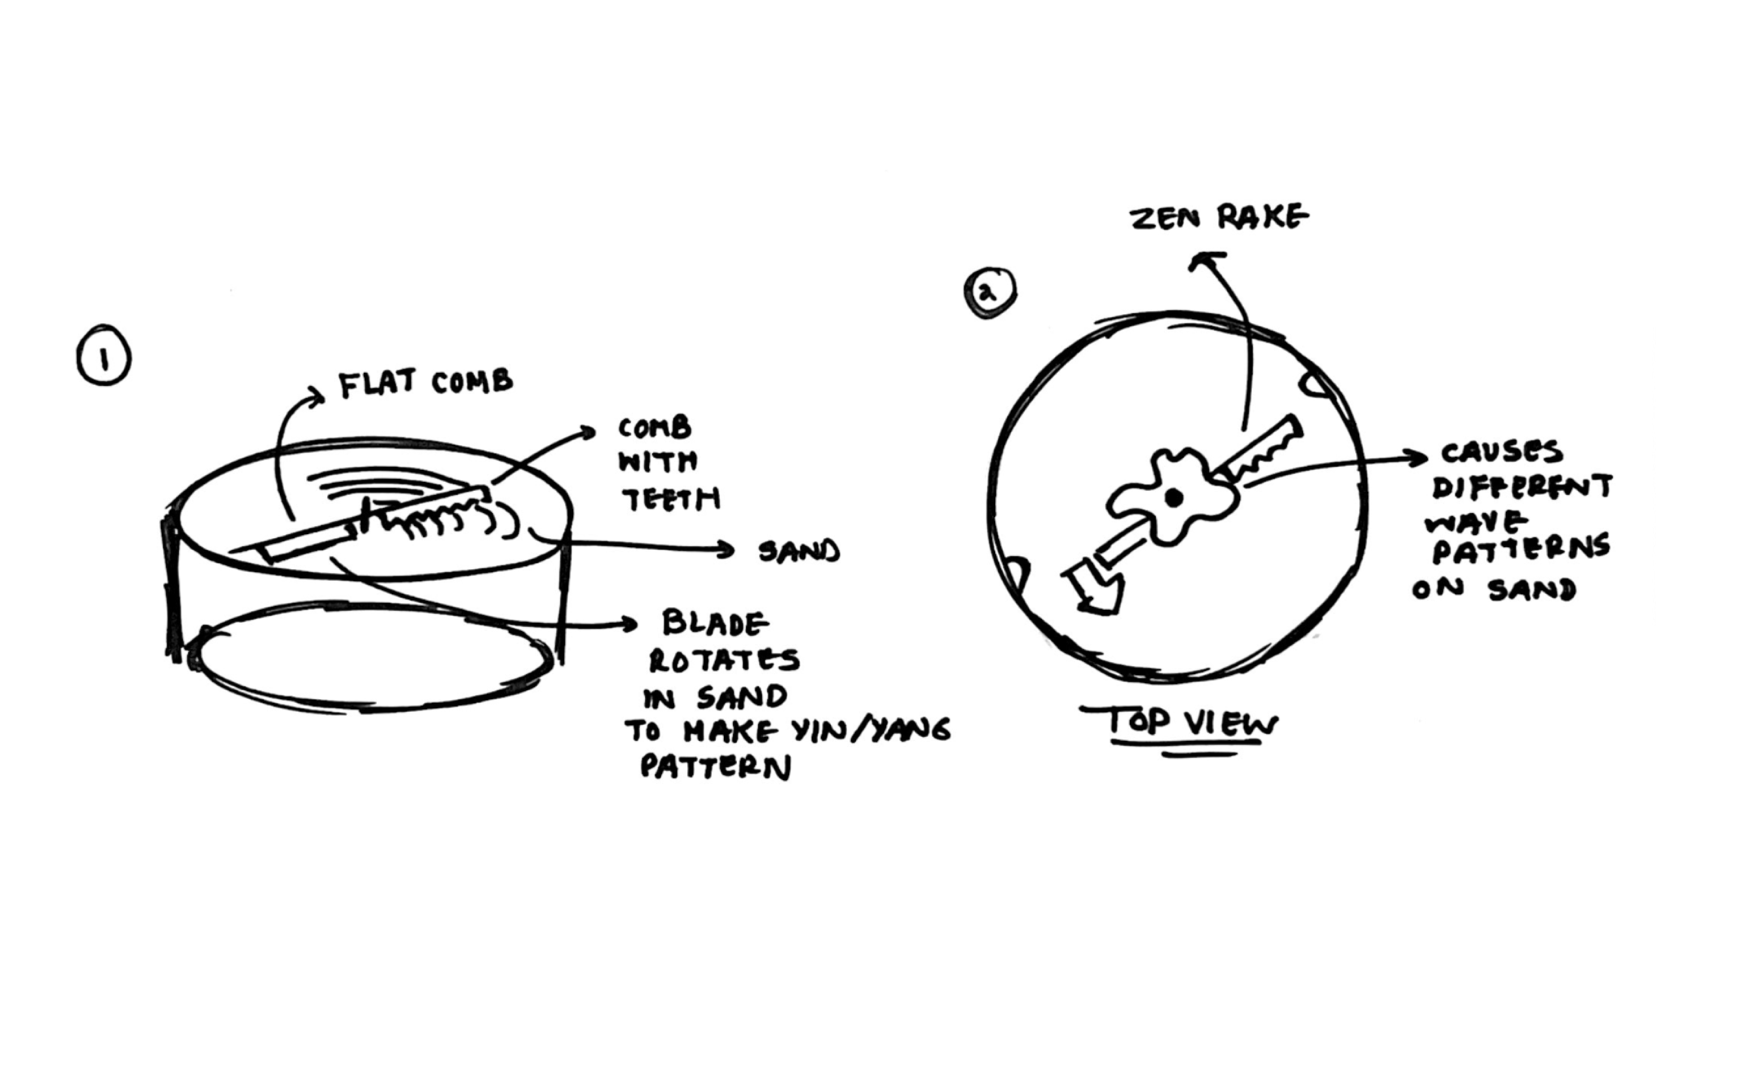 1
FLAT COMB
COMB
WITH
TEETH
SAND
BLADE
ROTATES
IN SAND
TO MAKE YIN/YANG
PATTERN
2
ZEN RAKE
CAUSES
DIFFERENT
WAVE
PATTERNS
ON SAND
TOP VIEW